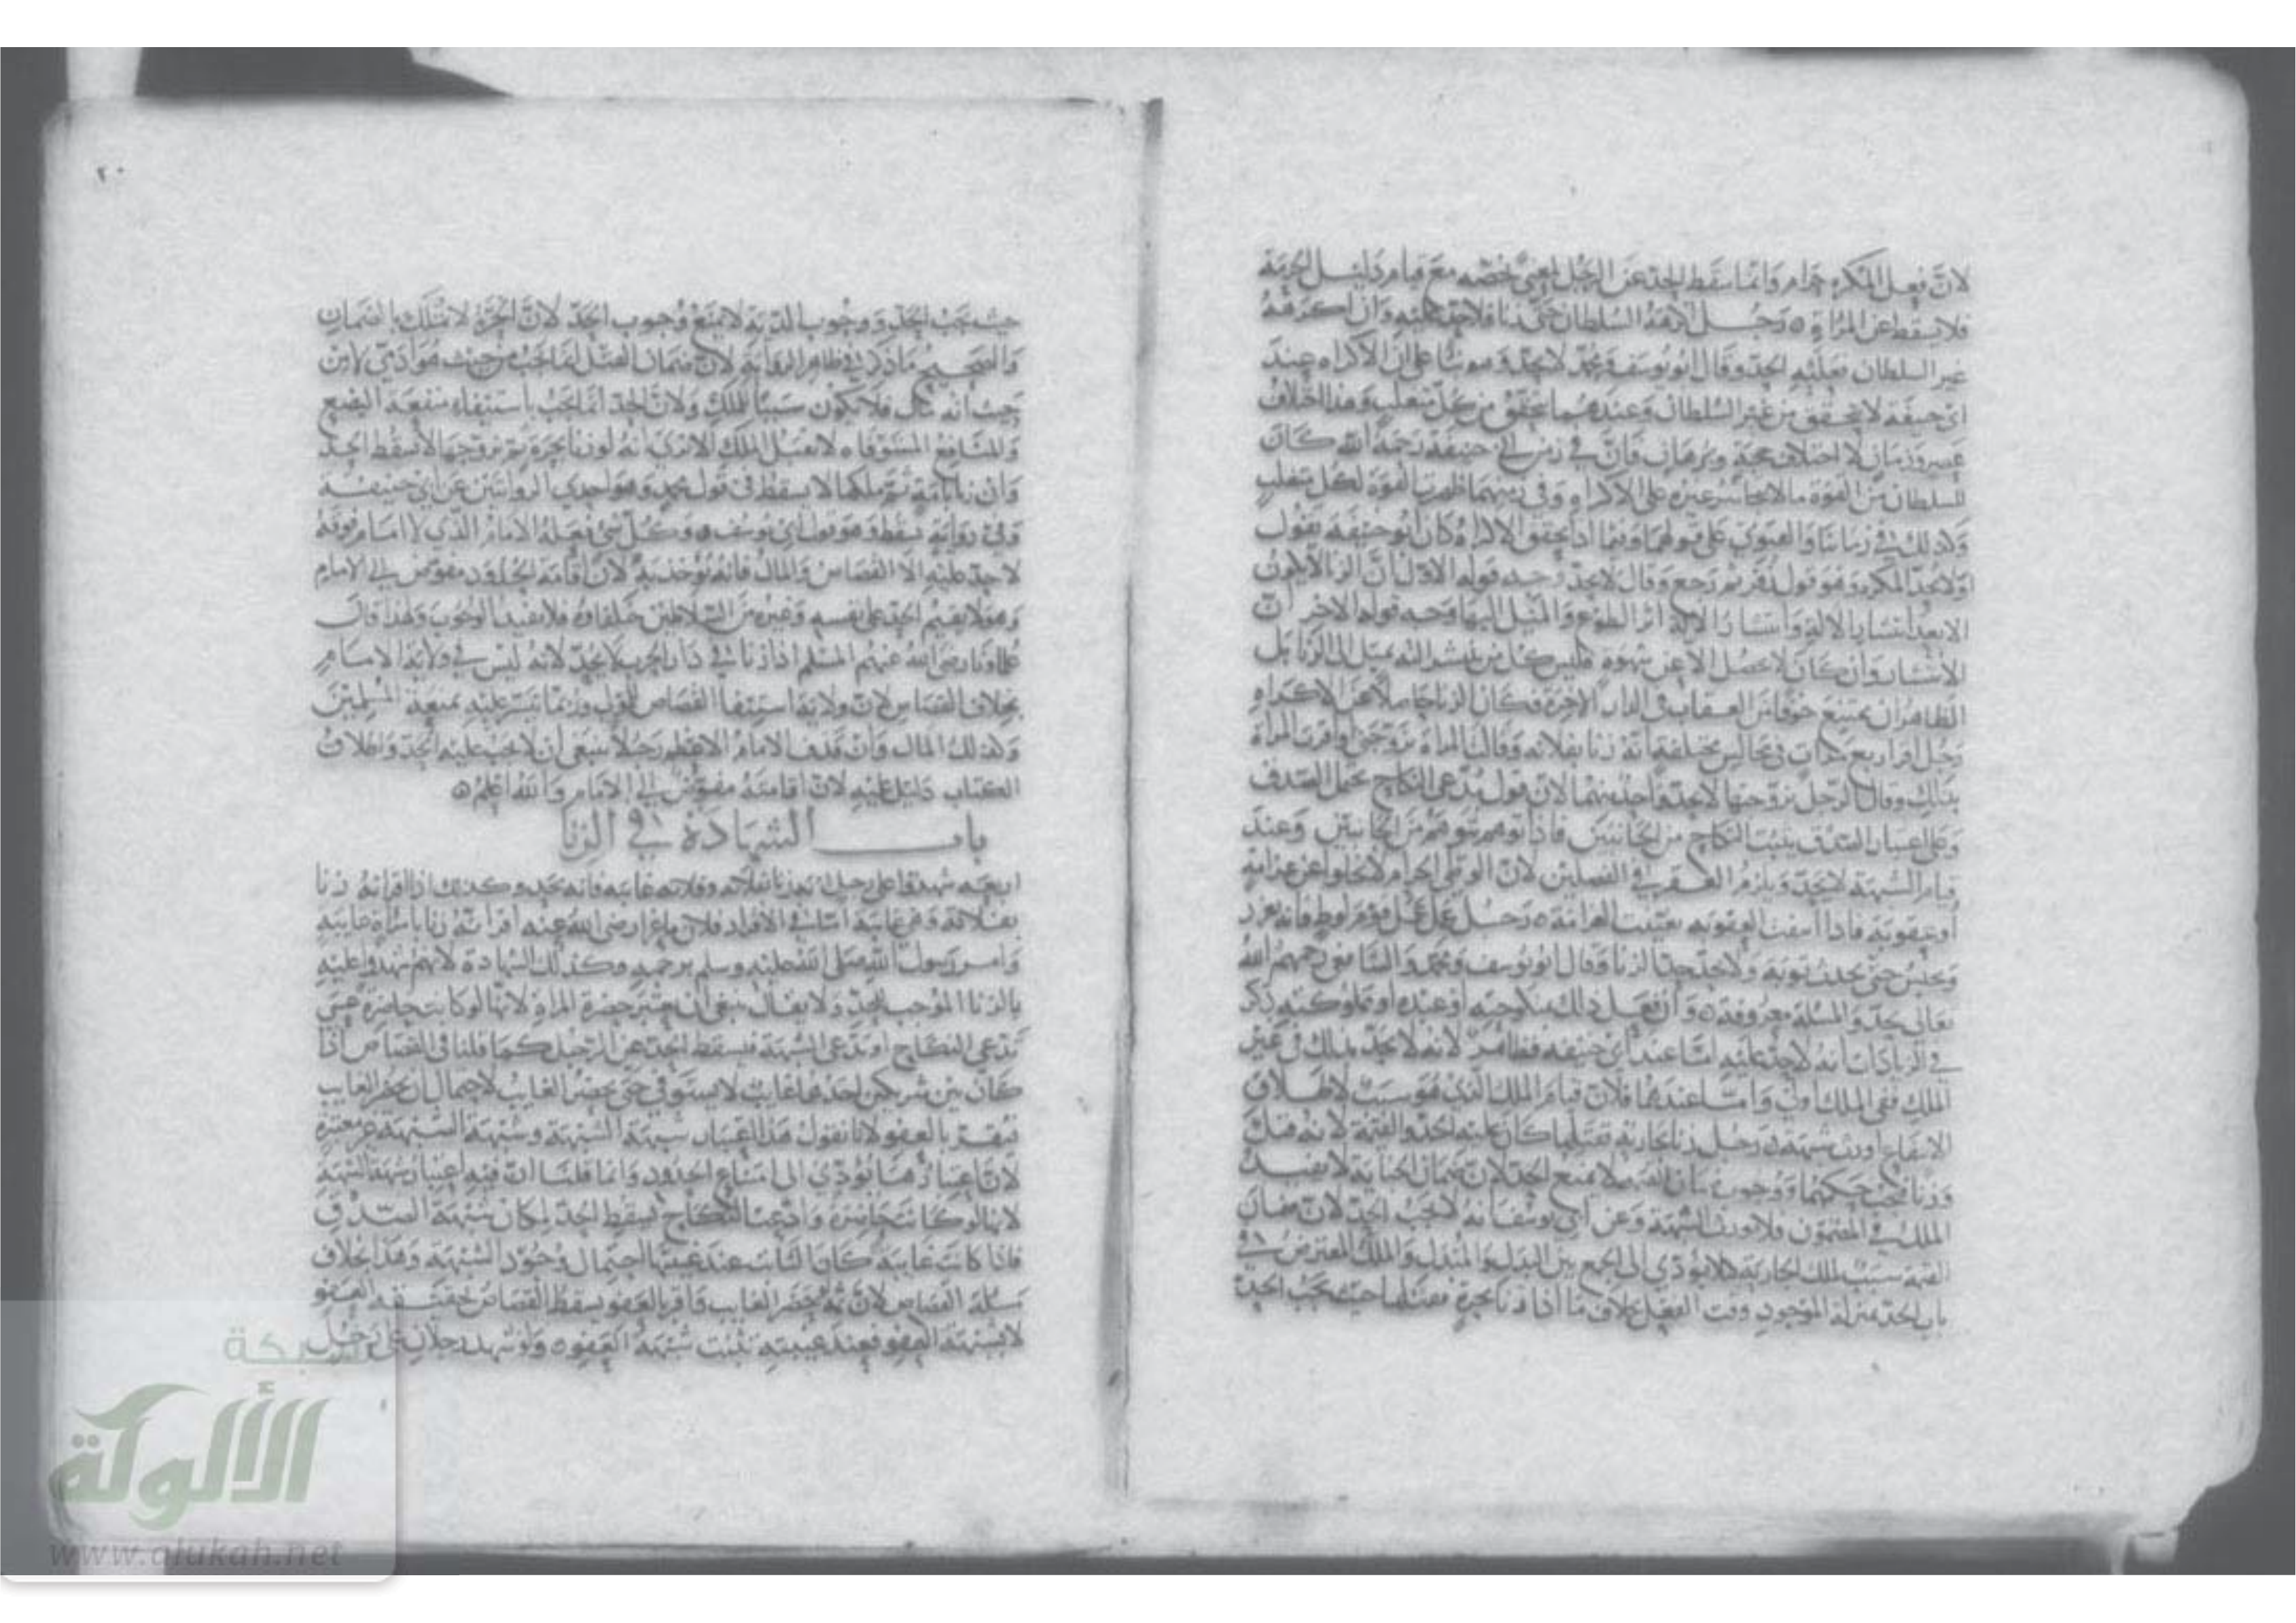 لان فعل المكره حرام وانما سقط الحد عن الرجل لمعنى خصه مع قيام دليل الحرمة
فلا يسقط عن المراة ه رجل اكرهه السلطان حتى زنا فلا حد عليه وان اكرهه
غير السلطان فعليه الحد وقال ابو يوسف ومحمد لا يحد وهو بنا على ان الاكراه عند
ابي حنيفة لا يتحقق من غير السلطان وعندهما يتحقق من كل متغلب وهذا اختلاف
عصر وزمان لا اختلاف حجة وبرهان فان في زمن ابي حنيفة رحمه الله كان
للسلطان من القوة ما لا يتجاسر غيره على الاكراه وفي زمنهما ظهرت القوة لكل متغلب
وكذلك في زماننا والفتوى على قولهما وفيما اذا تحقق الاكراه كان ابو حنيفة يقول
اولا يحد المكره وهو قول زفر ثم رجع وقال لا يحد وجه قوله الاول ان الزنا لا يكون
الا بعد انتشار الالة وانتشار الالة اثر الطوع والميل اليها وجه قوله الاخر ان
الانتشار وان كان لا يحصل الا عن شهوة فليس كل من انتشر الته يميل الى الزنا بل
الظاهر ان يمتنع خوفا من العقاب في الدار الاخرة فكان الزنا حاملا على الاكراه
رجل اقر اربع مرات في مجالس مختلفة انه زنا بفلانة وقالت المراة تزوجني او اقرت المراة
بذلك وقال الرجل تزوجتها لا يحد واحد منهما لان قول مدعي النكاح يحتمل الصدق
وعلى اعتبار الصدق يثبت النكاح من الجانبين فاذا توهم توهم من الجانبين وعند
قيام الشبهة لا يحد ويلزم العقر في الفصلين لان الوطئ الحرام لا يخلوا عن غرامة
او عقوبة فاذا انتفت العقوبة تعينت الغرامة ه رجل عمل عمل قوم لوط فانه يعزر
ويحبس حتى يحدث توبة ولا يحد حد الزنا وقال ابو يوسف ومحمد والشافعي رحمهم الله
تعالى يحد والمسئلة معروفة ه وان فعل ذلك بمنكوحته او عبده او مملوكته ذكر
في الزيادات انه لا حد عليه اما عند ابي حنيفة فظاهر لانه لا يحد بذلك في غير
الملك ففي الملك اولى واما عندهما فلان قيام الملك الذي هو سبب لاطلاق
الانتفاع اورث شبهة ه رجل زنا بجارية فقتلها كان عليه الحد والقيمة لانه قتل
وزنا فيجب حكمهما ووجوب ضمان القيمة لا يمنع الحد لان ضمان الجناية لا يفيد
الملك في المضمون فلا يورث الشبهة وعن ابي يوسف انه لا يجب الحد لان ضمان
القيمة سبب لملك الجارية كيلا يؤدي الى الجمع بين البدل والمبدل والملك المعترض في
باب الحد بمنزلة الموجود وقت الفعل بخلاف ما اذا زنا بحرة فقتلها حيث يجب الحد
حيث يجب الحد ووجوب الدية لا يمنع وجوب الحد لان الحرة لا تملك بالضمان
والصحيح ما ذكر في ظاهر الرواية لان ضمان القتل انما يجب من حيث هو ادمي لا من
حيث انه مال فلا يكون سببا للملك ولان الحد انما يجب باستيفاء منفعة البضع
والمنافع المستوفاة لا تقبل الملك الا ترى انه لو زنا بحرة ثم تزوجها لا يسقط الحد
وان زنا بامة ثم ملكها لا يسقط في قول محمد وهو احدي الروايتين عن ابي حنيفة
وفي رواية يسقط وهو قول ابي يوسف ه وكل شئ فعله الامام الذي لا امام فوقه
لا حد عليه الا القصاص والمال فانه يؤخذ به لان اقامة الحدود مفوض الى الامام
وهو لا يقيم الحد على نفسه وغيره من السلاطين خلفاؤه فلا يفيد الوجوب ولهذا قال
علماؤنا رضي الله عنهم المسلم اذا زنا في دار الحرب لا يحد لانه ليس في ولاية الامام
بخلاف القصاص لان ولاية استيفاء القصاص للولي وربما تيسر عليه بمنعة المسلمين
وكذلك المال وان قذف الامام الاعظم رجلا ينبغي ان لا يجب عليه الحد واطلاق
الكتاب دليل عليه لان اقامته مفوض الى الامام والله اعلم ه
باب الشهادة في الزنا
اربعة شهدوا على رجل انه زنا بفلانة وفلانة غايبة فانه يحد وكذلك اذا اقر انه زنا
بفلانة وهي غايبة اما في الاقرار فلان ماعزا رضي الله عنه اقر انه زنا بامراة غايبة
وامر رسول الله صلى الله عليه وسلم برجمه وكذلك الشهادة لانهم شهدوا عليه
بالزنا الموجب للحد ولا يقال ينبغي ان يعتبر حضرة المراة لانها لو كانت حاضرة عسى
تدعي النكاح او تدعي الشبهة فيسقط الحد عن الرجل كما قلنا في القصاص اذا
كان بين شريكين احدهما غايب لا يستوفي حتى يحضر الغايب لاحتمال ان يحضر الغايب
فيقر بالعفو لانا نقول هذا اعتبار شبهة الشبهة وشبهة الشبهة غير معتبرة
لان اعتبارها يؤدي الى امتناع الحدود وانما قلنا ان فيه اعتبار شبهة الشبهة
لانها لو كانت حاضرة وادعت النكاح يسقط الحد لمكان شبهة الصدق
فاذا كانت غايبة كان الثابت عند غيبتها احتمال وجود الشبهة وهذا بخلاف
مسئلة القصاص لان ثمه لو حضر الغايب واقر بالعفو يسقط القصاص لحقيقة العفو
لا بشبهة العفو فعند غيبته تثبت شبهة العفو ه ولو شهد رجلان على رجل
٢٠
شبكة
الألوكة
www.alukah.net